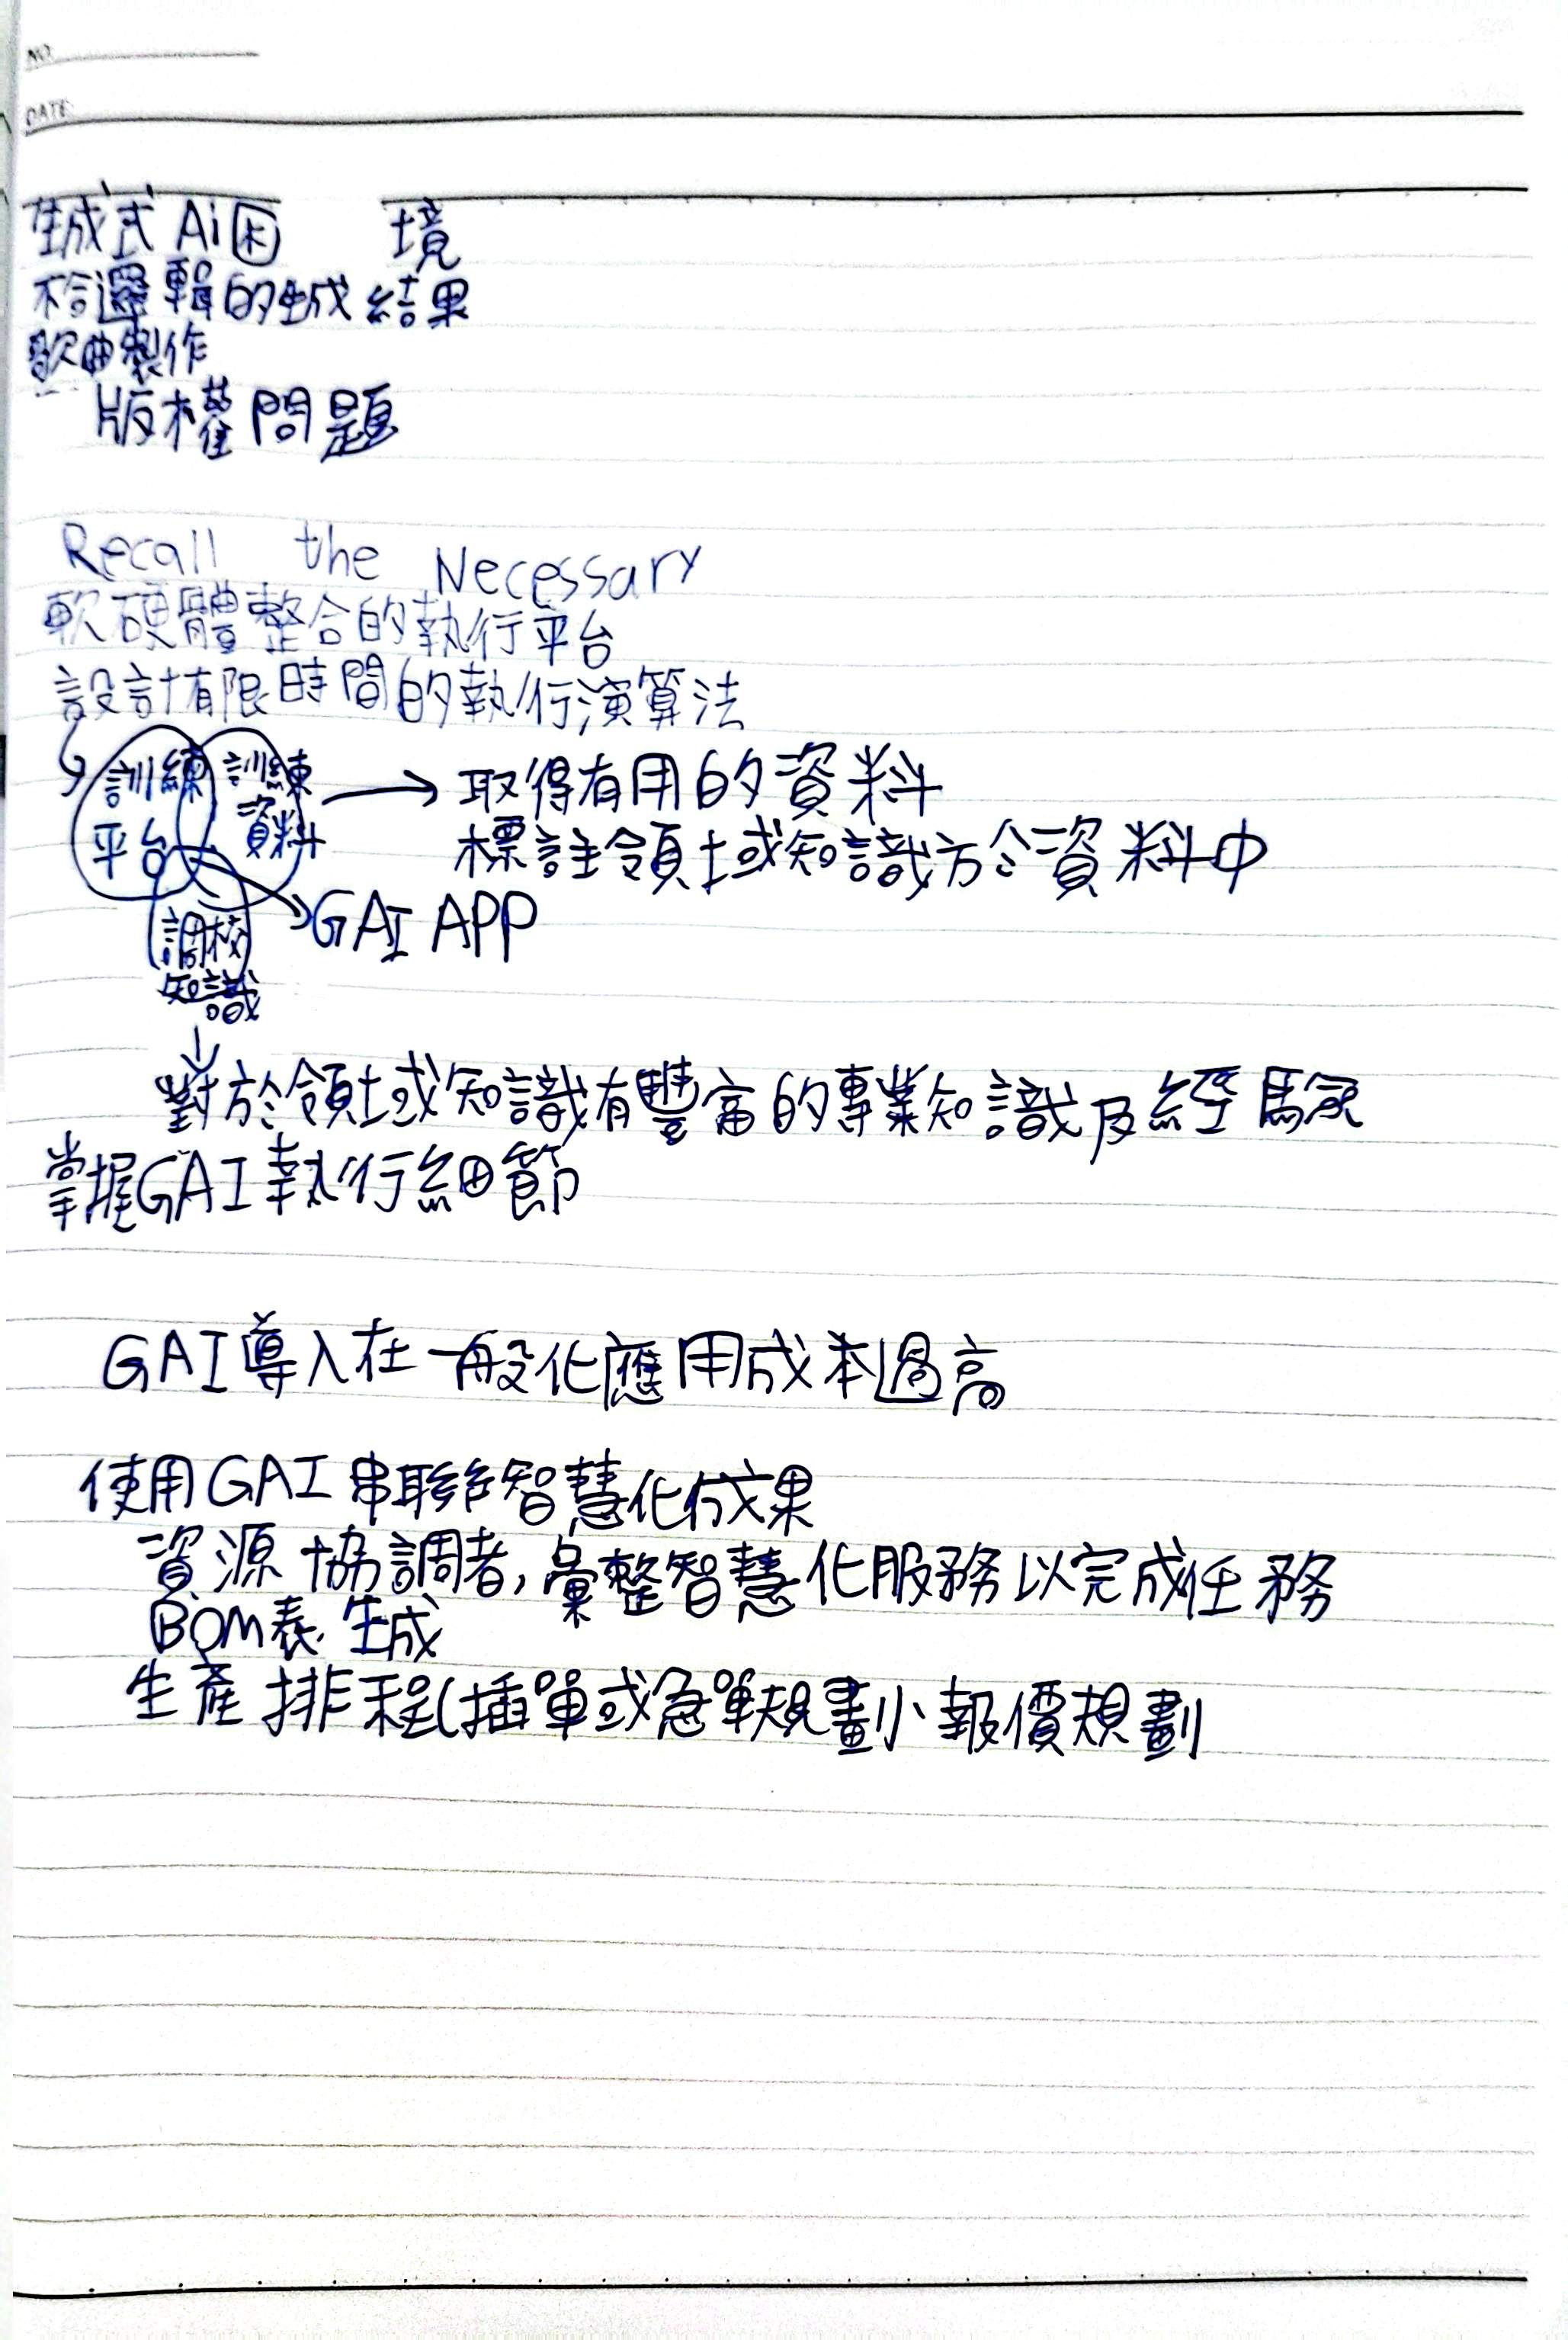 NO.
DATE:
生成式 Ai困 境
不合邏輯的生成結果
歌曲製作
版權問題
Recall the Necessary
軟硬體整合的執行平台
設計有限時間的執行演算法
訓練
平台
訓練
資料
→ 取得有用的資料
標註領域知識於資料中
GAI APP
調校
知識
↓
對於領域知識有豐富的專業知識及經驗
掌握GAI執行細節
GAI導入在一般化應用成本過高
使用GAI串聯智慧化成果
資源協調者,彙整智慧化服務以完成任務
BOM表生成
生產排程(插單或急單規劃)、報價規劃